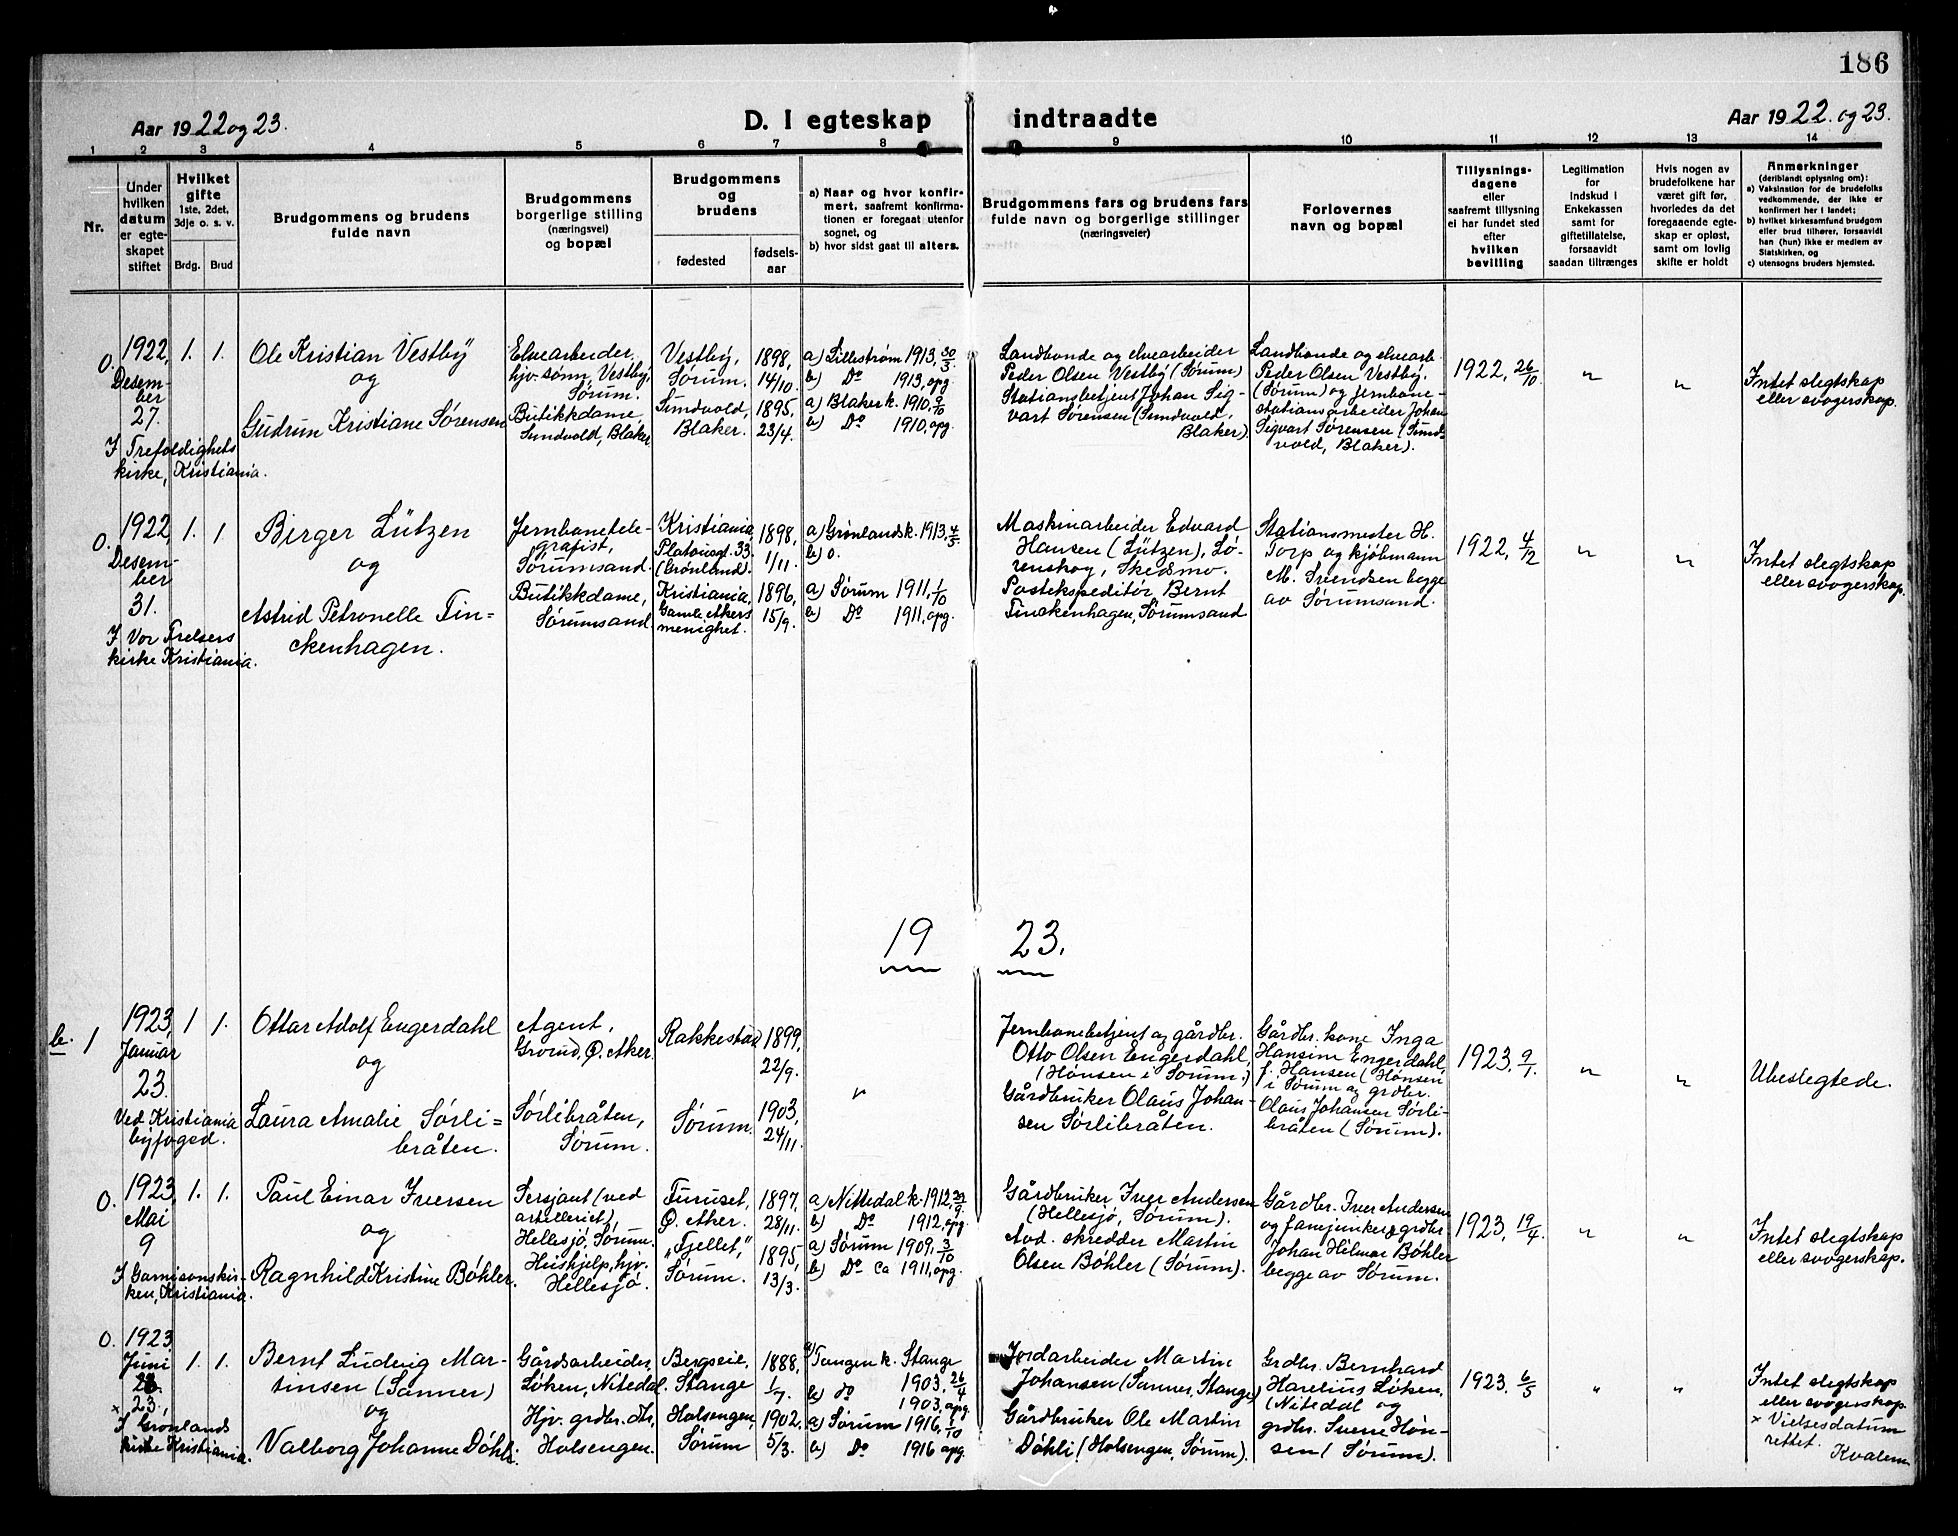 186
Aar 1922 og 23.
D. I egteskap indtraadte
Aar 1922. og 23.
1 2 3 4 5 6 7 8 9 10 11 12 13 14
Nr.
Under hvilken datum er egteskapet stiftet
Hvilket gifte 1ste, 2det, 3dje o. s. v.
Brdg. Brud
Brudgommens og brudens fulde navn
Brudgommens borgerlige stilling (næringsvei) og bopæl
Brudgommens og brudens
fødested
fødselsaar
a) Naar og hvor konfirmert, saafremt konfirmationen er foregaat utenfor sognet, og
b) hvor sidst gaat til alters.
Brudgommens fars og brudens fars fulde navn og borgerlige stillinger (næringsveier)
Forlovernes navn og bopæl
Tillysningsdagene eller saafremt tillysning ei har fundet sted efter hvilken bevilling
Legitimation for Indskud i Enkekassen samt for giftetillatelse, forsaavidt saadan tiltrænges
Hvis nogen av brudefolkene har været gift før, hvorledes da det foregaaende egteskap er opløst, samt om lovlig skifte er holdt
Anmerkninger (deriblandt oplysning om):
a) Vaksination for de brudefolks vedkommende, der ikke er konfirmert her i landet;
b) hvilket kirkesamfund brudgom eller brud tilhører, forsaavidt han (hun) ikke er medlem av Statskirken, og
c) utensogns bruders hjemsted.
0. 1922, Desember 27.
I Trefoldighets kirke, Kristiania.
1. 1.
Ole Kristian Vestby
og
Gudrun Kristiane Sørensen
Elvearbeider, hjv. sønn, Vestby, Sørum.
Butikkdame, Sundvold, Blaker
Vestby, Sørum.
Sundvold, Blaker.
1898, 14/10.
1895, 23/4.
a) Lillestrøm 1913, 30/3
b) Do 1913, opg.
a) Blaker k. 1910, 9/10
b) Do 1910, opg.
Landbonde og elvearbeider
Peder Olsen Vestby (Sørum)
Stationsbetjent Johan Sigvart Sørensen (Sundvold, Blaker).
Landbonde og elvearb. Peder Olsen Vestby, (Sørum) og jernbanestationsarbeider Johan Sigvart Sørensen (Sundvold, Blaker).
1922, 26/10.
"
"
Intet slegtskap eller svogerskap.
0. 1922, Desember 31.
I Vor Frelsers kirke Kristiania.
1. 1
Birger Lützen
og
Astrid Petronelle Finckenhagen.
Jernbanetelegrafist, Sørumsand.
Butikkdame, Sørumsand.
Kristiania, Platousgt. 33. (Grønland).
Kristiania, Gamle Akers menighet.
1898, 1/11.
1896, 15/9.
a) Grønlands k. 1913, 4/5.
b) 0.
a) Sørum 1911, 1/10
b) Do 1911, opg.
Maskinarbeider Edvard Hansen (Lützen), Lørenskog, Skedsmo.
Postekspeditør Bernt Finckenhagen, Sørumsand
Stationsmester H. Torp og kjøbmann M. Svendsen begge av Sørumsand.
1922, 4/12
"
"
Intet slegtskap eller svogerskap.
1923.
b. 1
1923, Januar 23.
Ved Kristiania byfoged.
1 1.
Ottar Adolf Engerdahl
og
Laura Amalie Sørlibråten.
Agent, Grorud, Ø. Aker.
Sørlibråten, Sørum.
Rakkestad
Sørum.
1899, 22/9.
1903, 24/11.
"
Jernbanebetjent og gårdbr. Otto Olsen Engerdahl, (Hønsen i Sørum.)
Gårdbruker Olaus Johansen Sørlibråten.
Gårdbr. kone Inga Hansine Engerdahl, f. Hansen (Hønsen i Sørum og grdbr. Olaus Johansen Sørlibråten (Sørum).
1923, 9/1.
"
"
Ubeslegtede.
0. 1923, Mai 9
I Garnisonskirken, Kristiania.
1. 1.
Paul Einar Iversen
og
Ragnhild Kristine Bøhler.
Sersjant (ved artilleriet), Hellesjø, Sørum.
Hushjelp, hjv. Hellesjø.
Furuset, Ø. Aker.
"Fjellet," Sørum.
1897, 28/11.
1895, 13/3.
a) Nittedal k. 1912, 29/9.
b) Do 1912, opg.
a) Sørum 1909, 3/10
b) Do ca 1911, opg.
Gårdbruker Iver Andersen (Hellesjø, Sørum).
Avd. skredder Martin Olsen Bøhler (Sørum).
Gårdbr. Iver Andersen og fanejunker & grdbr. Johan Hilmar Bøhler begge av Sørum.
1923, 19/4.
"
"
Intet slegtskap eller svogerskap.
0. 1923, Juni
× 23.,
I Grønlands kirke Kristiania.
1. 1.
Bernt Ludvig Martinsen (Sanner)
og
Valborg Johanne Døhli.
Gårdsarbeider, Løken, Nitedal.
Hjv. grdbr. dtr., Holsengen.
Bergseie, Stange
Holsengen, Sørum
1888, 1/7.
1902, 5/3.
a) Tangen k. Stange 1903, 26/4
b) do 1903, opg.
a) Sørum 1916, 1/10
b) Do 1916 opg.
Jordarbeider Martin Johansen (Sanner, Stange)
Gårdbruker Ole Martin Døhli (Holsengen, Sørum).
Grdbr. Bernhard Harelius Løken, (Nitedal og grdbr. Sverre Hønsen (Sørum).
1923. 6/5
"
"
Intet slegtskap eller svogerskap
× Vielsesdatum rettet.
Kvalem